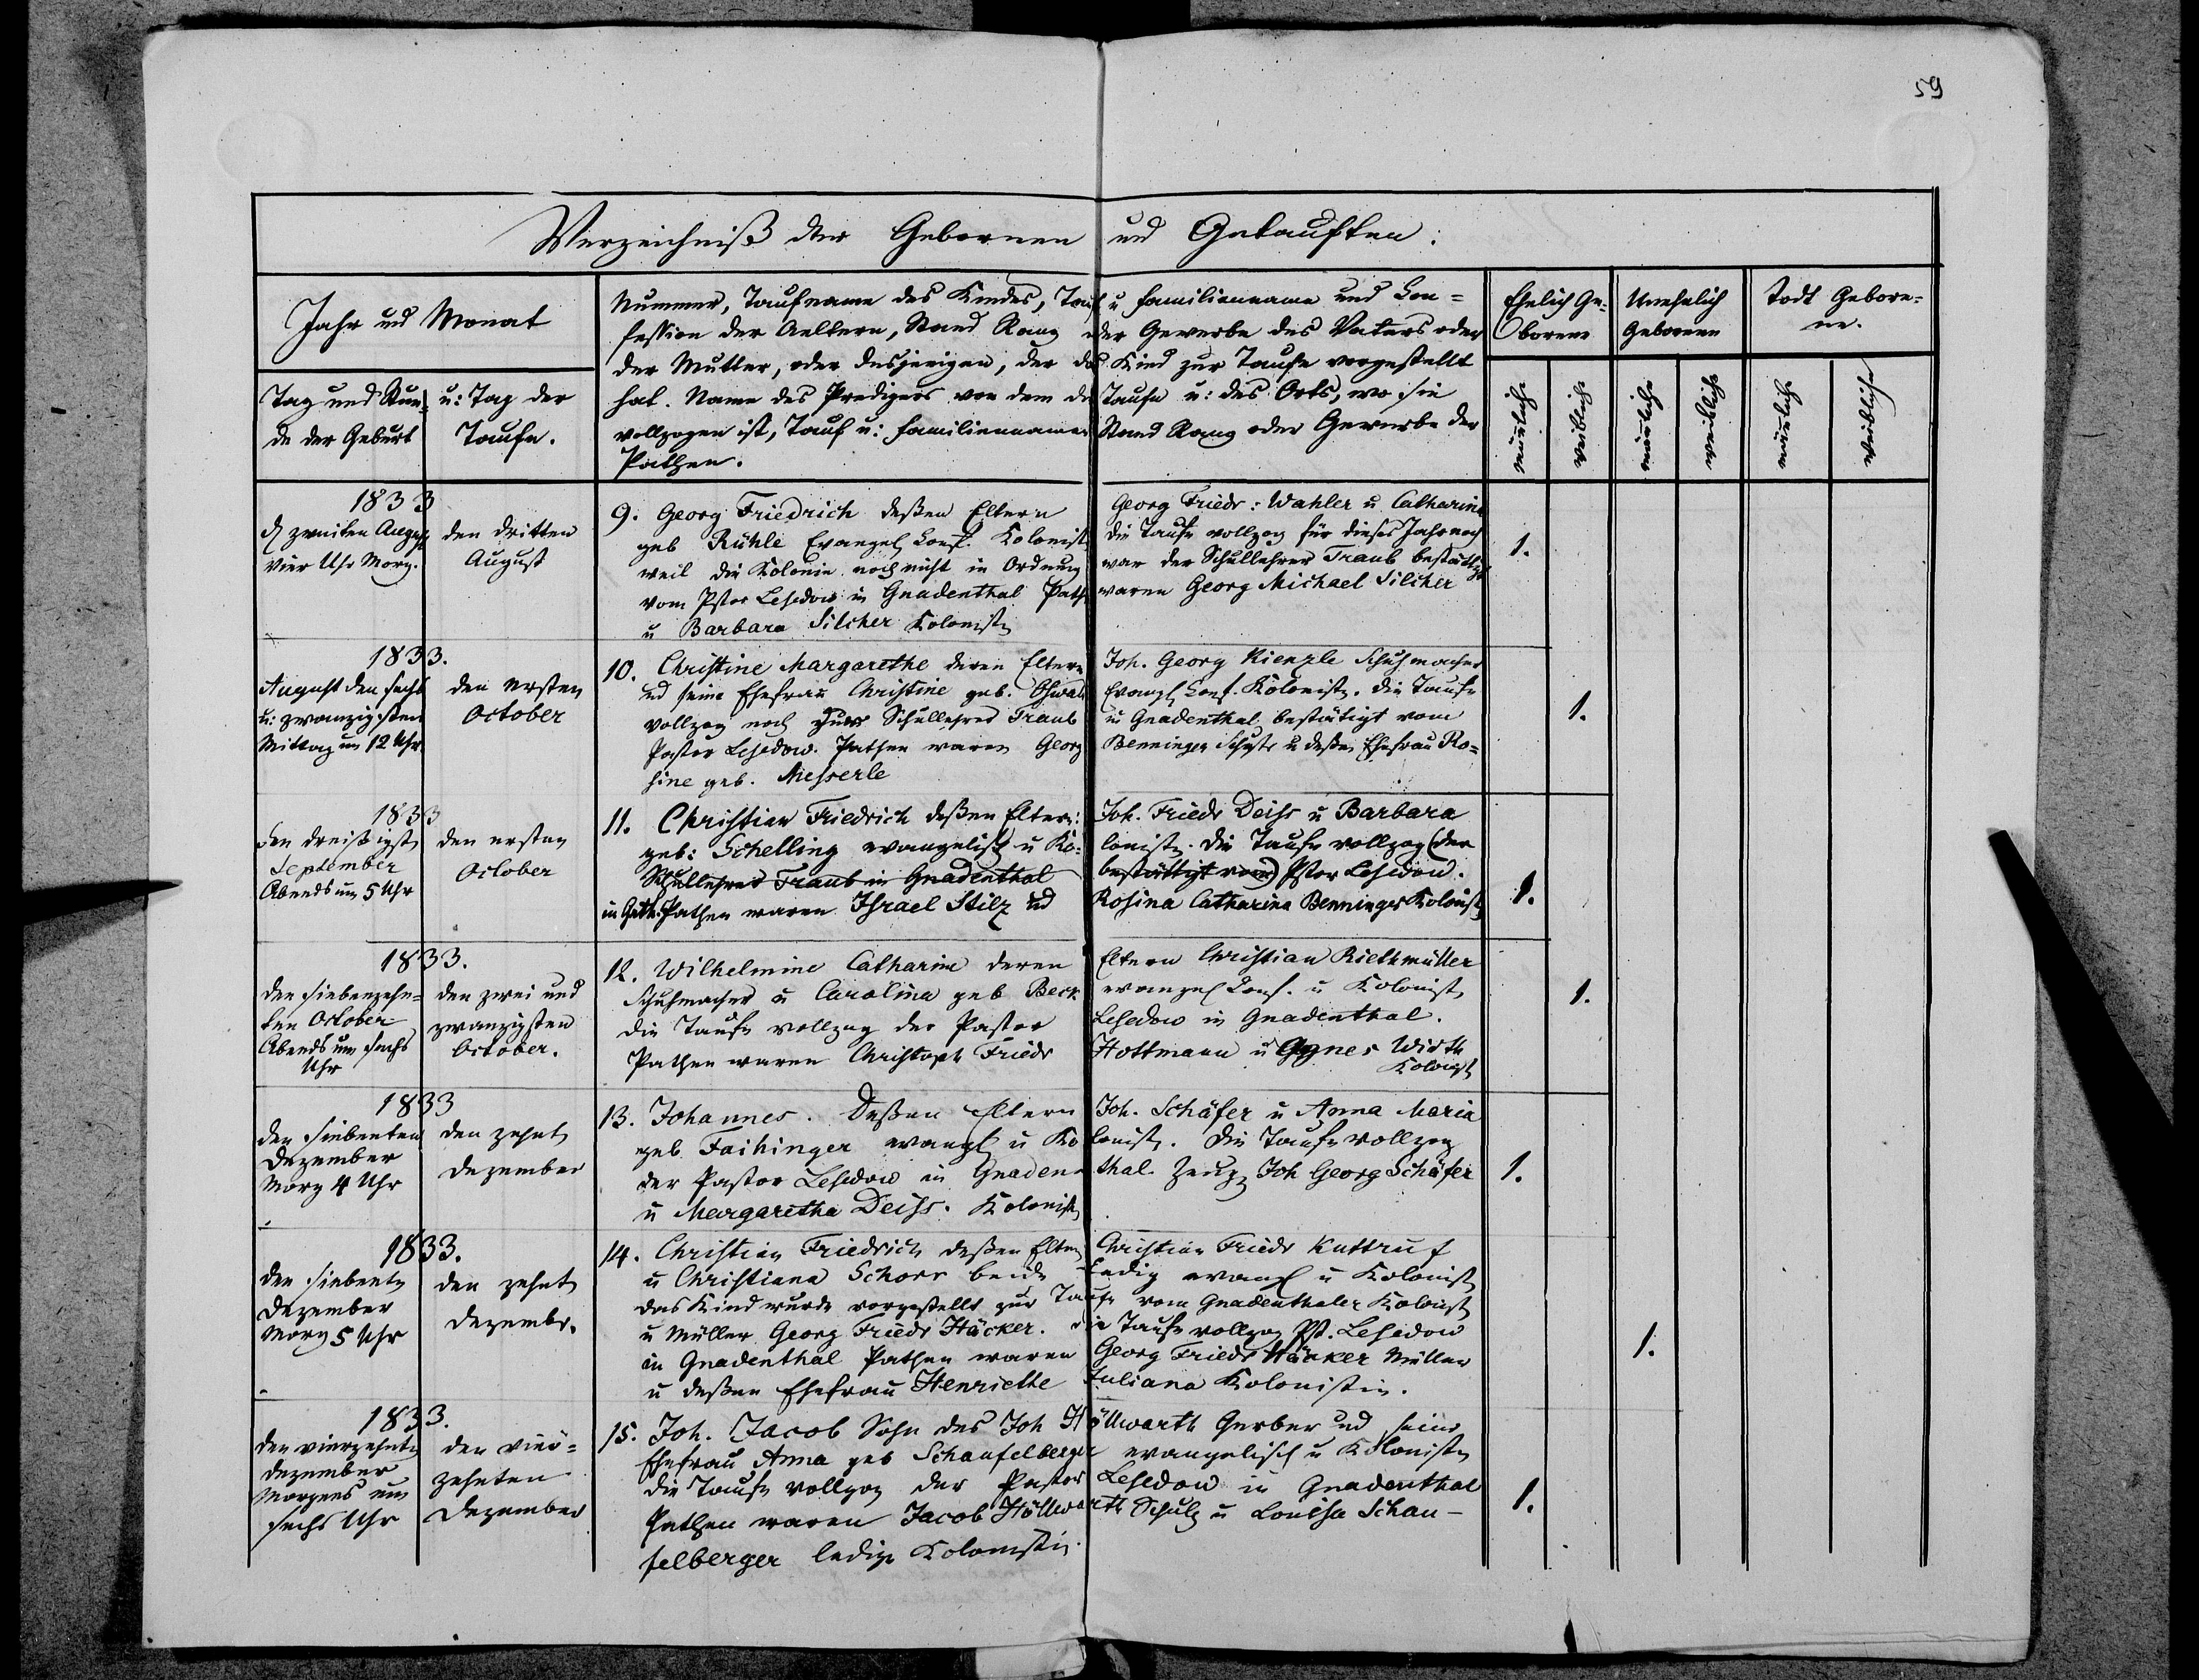 59
Verzeichniß der Gebornen und Getauften.
Jahr und Monat
Tag und Stun-
de der Geburt
u: Tag der
Taufe.
Nummer, Taufname des Kindes, Tauf u Familienname und Con=
fession der Aeltern, Stand Rang oder Gewerbe des Vaters oder
der Mutter, oder desjenigen, der das Kind zur Taufe vorgestellt
hat. Name des Predigers von dem die Taufe u: des Orts, wo sie
vollzogen ist, Tauf u: Familienname Stand Rang oder Gewerbe der
Pathen.
Ehelich Ge-
borene
Unehelich
Geborene
Todt Gebore-
ne.
mänliche
weibliche
mänliche
weibliche
mänliche
weibliche
1833
d zweiten August
vier Uhr Morg.
den dritten
August
9. Georg Friedrich deßen Eltern Georg Friedr: Wahler u Catharina
geb Rühle Evangel Conf. Kolonist die Taufe vollzog für dieses Jahr noch
weil die Kolonie noch nicht in Ordnung war der Schullehrer Traub bestätigt
vom Pstor Lesedow in Gnadenthal Path waren Georg Michael Silcher
u Barbara Silcher Kolonist
1.
1833.
August den sechs
u: zwanzigsten
Mittag um 12 Uhr
den ersten
October
10. Christine Margarethe deren Eltern Joh. Georg Kienzle Schuhmacher
und seine Ehefrau Christine geb. Evangl Conf. Kolonist. die Taufe
vollzog noch Schullehrer Traub in Gnadenthal bestätigt vom
Pastor Lesedow. Pathen waren Georg Benninger u deßen Ehefrau Ro=
sine geb. Messerle
1.
1833
den dreißigst
September
Abends um 5 Uhr
den ersten
October
11. Christian Friedrich deßen Eltern: Joh. Friedr Deiss u Barbara
geb: Schelling evangelisch u Ko= lonist. die Taufe vollzog (der
Schullehrer Traub in Gnadenthal bestättigt vom) Pstor Lesedow.
in Gnth. Pathen waren Israel Stilz und Rosina Catharina Benninger Kolonist
1.
1833.
den siebenzehn=
ten October
Abends um sechs
Uhr
den zwei und
zwanzigsten
October.
12. Wilhelmine Catharine deren Eltern Christian Riethmüller
Schuhmacher u Carolina geb Beck evangel Conf. u Kolonist
die Taufe vollzog der Pastor Lesedow in Gnadenthal.
Pathen waren Christoph Friedr Hottmann u Agnes Wirth
Kolonist
1.
1833
den siebenten
Dezember
Morg 4 Uhr
den zehnt
Dezember
13. Johannes. Deßen Eltern Joh. Schäfer u Anna Maria
geb Faihinger evangl u Ko lonist. Die Taufe vollzog
der Pastor Lesedow in Gnaden= thal. Zeug Joh Georg Schäfer
u Margaretha Deiss. Kolonist
1.
1833.
den siebent
Dezember
Morg 5 Uhr
den zehnt
Dezembr.
14. Christian Friedrich deßen Eltern Christian Friedr Kuttruf
u Christiana Schorr beide ledig evangl u Kolonist
das Kind wurde vorgestellt zur Taufe vom Gnadenthaler Kolonist
u Müller Georg Friedr Häcker. die Taufe vollzog Pst. Lesedow
in Gnadenthal Pathen waren Georg Friedr Häcker Müller
u deßen Ehefrau Henriette Juliana Kolonistin.
1.
1833.
den vierzehnt
Dezember
Morgens um
sechs Uhr
den vier=
zehnten
Dezember
15. Joh. Jacob Sohn des Joh Höllwarth Gerber und seine
Ehefrau Anna geb Schaufelberger evangelisch u Kolonist
die Taufe vollzog der Pastor Lesedow in Gnadenthal
Pathen waren Jacob Höllwarth Schulz u Louisa Schau-
felberger ledige Kolonistin.
1.